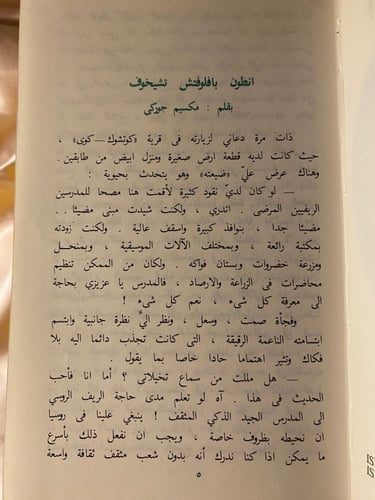 انطون بافلوفتش تشيخوف
بقلم : مكسيم جوركى
ذات مرة دعانى لزيارته فى قرية «كوتشوك — كوى» ،
حيث كانت لديه قطعة ارض صغيرة ومنزل ابيض من طابقين .
وهناك عرض علىّ «ضيعته» وهو يتحدث بحيوية :
— لو كان لدىّ نقود كثيرة لأقمت هنا مصحا للمدرسين
الريفيين المرضى . اتدرى ، ولكنت شيدت مبنى مضيئا . .
مضيئا جدا ، بنوافذ كبيرة واسقف عالية . ولكنت زودته
بمكتبة رائعة ، وبمختلف الآلات الموسيقية ، وبمنحل
ومزرعة خضروات وبستان فواكه . ولكان من الممكن تنظيم
محاضرات فى الزراعة والارصاد ، فالمدرس يا عزيزى بحاجة
الى معرفة كل شىء ، نعم كل شىء !
وفجأة صمت ، وسعل ، ونظر الىّ نظرة جانبية وابتسم
ابتسامته الناعمة الرقيقة ، التى كانت تجذب دائما اليه بلا
فكاك وتثير اهتماما حادا خاصا بما يقول .
— هل مللت من سماع تخيلاتى ؟ أما انا فأحب
الحديث فى هذا . آه لو تعلم مدى حاجة الريف الروسى
الى المدرس الجيد الذكى المثقف ! ينبغى علينا فى روسيا
ان نحيطه بظروف خاصة ، ويجب ان نفعل ذلك بأسرع
ما يمكن اذا كنا ندرك أنه بدون شعب مثقف ثقافة واسعة
٥